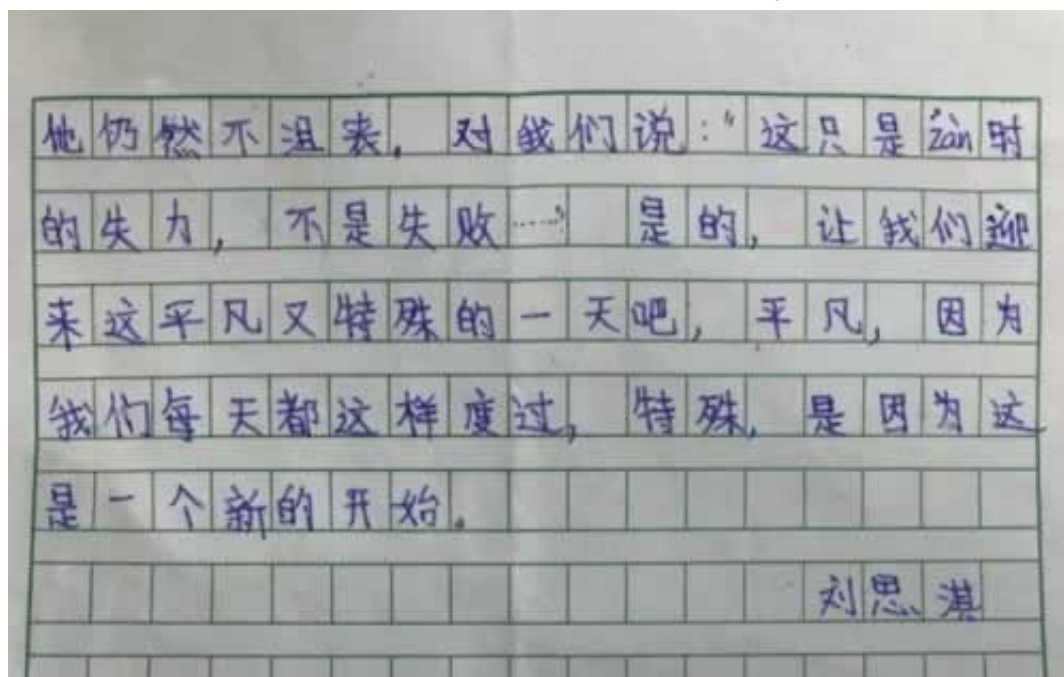 他仍然不沮丧,对我们说:“这只是zàn时
的失力,不是失败……”是的,让我们迎
来这平凡又特殊的一天吧,平凡,因为
我们每天都这样度过,特殊,是因为这
是一个新的开始。
刘思淇